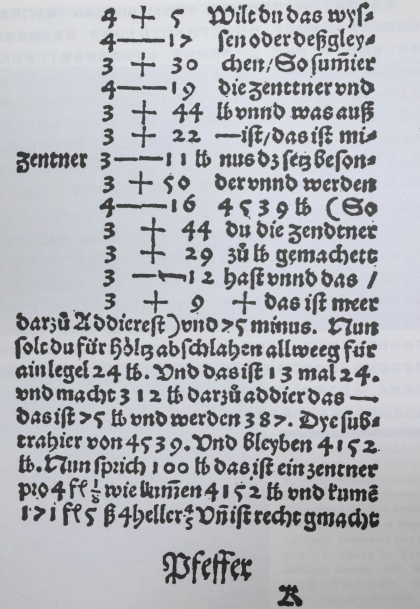 4 + 5 Wilt du das wyſ⸗
4 — 17 ſen oder deßgley⸗
3 + 30 chen/ So ſum̄ier
4 — 19 die zenttner vnd
3 + 44 ℔ vnnd was auß
3 + 22 — iſt/ das iſt mi⸗
zentner 3 — 11 ℔ nus dz ſetz beſon⸗
3 + 50 der vnnd werden
4 — 16 4539 ℔ (So
3 + 44 du die zendtner
3 + 29 zů ℔ gemachett
3 — 12 haſt vnnd das /
3 + 9 + das iſt meer
darzů Addiereſt) vnd 75 minus. Nun
ſolt du für holtz abſchlahen allweeg für
ain legel 24 ℔. Vnd das iſt 13 mal 24.
vnd macht 312 ℔ darzů addier das —
das iſt 75 ℔ vnd werden 387. Dye ſub⸗
trahier von 4539. Vnd bleyben 4152
℔. Nun ſprich 100 ℔ das iſt ein zentner
pro 4 fl ⅛ wie kum̄en 4152 ℔ vnd kumē
171 fl 5 ß 4 heller ⅘ Vn̄ iſt recht gmacht
Pfeffer